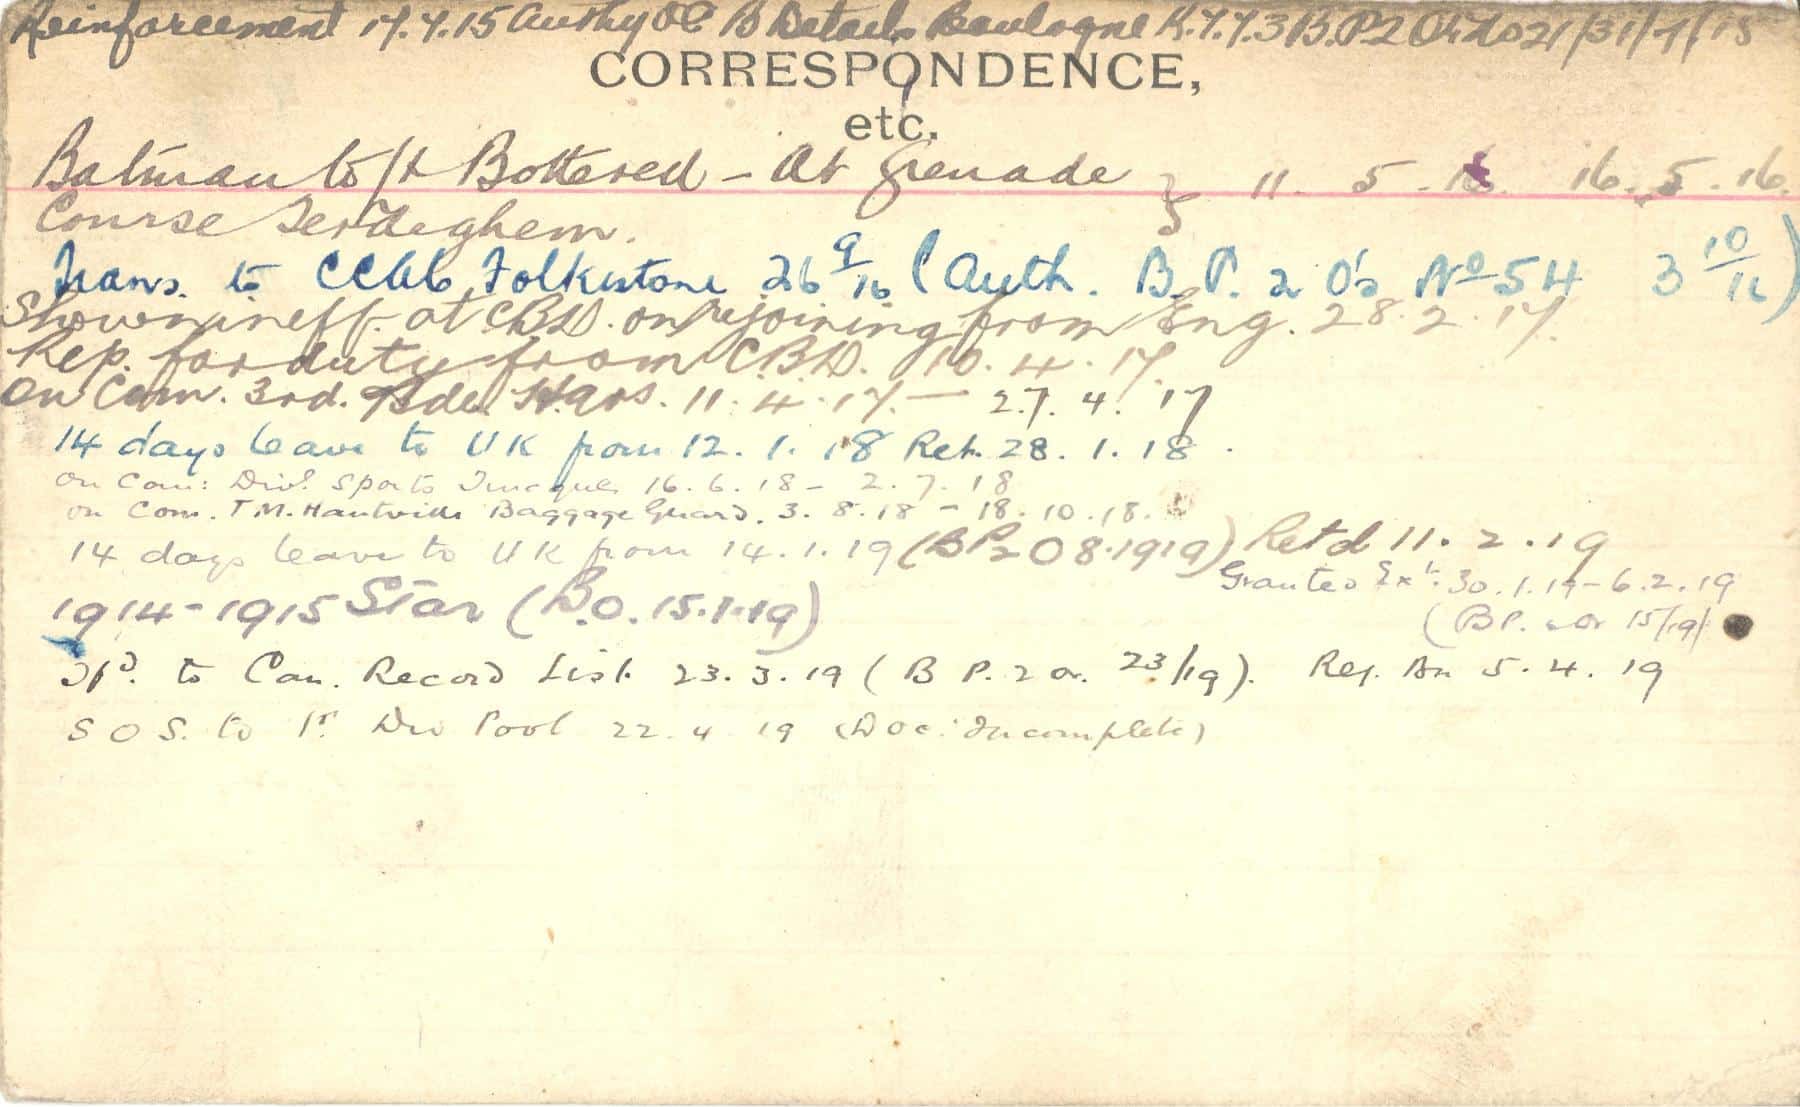 Reinforcement 17.7.15 Authy OC B Details Boulogne K.7.7.3 B.P2 Or No 21/31/7/15
CORRESPONDENCE,
etc.
Batman to Lt Bottered - At Grenade } 11. 5. 16. 16. 5. 16.
Course Terdeghem.
Trans. to CCAC Folkestone 26 9/16 (Auth. B.P. 2 O's No 54 3 10/16)
Shown ineff. at CBD. on rejoining from Eng. 28.2.17.
Rep. for duty from C.B.D. 10.4.17.
On Com. 3rd. Bde. Hqrs. 11.4.17. — 27.4.17
14 days leave to UK from 12.1.18 Ret. 28.1.18.
on Com: Divl Sports Tincques 16.6.18 - 2.7.18
on Com. T.M. Hautville Baggage Guard. 3.8.18 - 18.10.18.
14 days leave to UK from 14.1.19 (BP2 O 8.1919) Retd 11.2.19
Granted Ext. 30.1.19 - 6.2.19
1914-1915 Star (B.O. 15.1.19)
(BP. 2 Or 15/19)
Tfd. to Can. Record List. 23.3.19 (B P. 2 or. 23/19). Rej. Bn 5.4.19
S O S. to 1st Div Pool 22.4.19 (Doc: Incomplete)